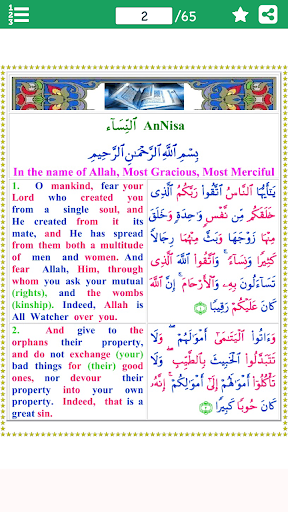 1
2
3
2 /65
ٱلنِّسَآء AnNisa
بِسْمِ ٱللَّهِ ٱلرَّحْمَٰنِ ٱلرَّحِيمِ
In the name of Allah, Most Gracious, Most Merciful
1. O mankind, fear your
Lord who created you
from a single soul, and
He created from it its
mate, and He has spread
from them both a multitude
of men and women. And
fear Allah, Him, through
whom you ask your mutual
(rights), and the wombs
(kinship). Indeed, Allah is
All Watcher over you.
يَٰٓأَيُّهَا ٱلنَّاسُ ٱتَّقُوا۟ رَبَّكُمُ ٱلَّذِى
خَلَقَكُم مِّن نَّفْسٍ وَٰحِدَةٍ وَخَلَقَ
مِنْهَا زَوْجَهَا وَبَثَّ مِنْهُمَا رِجَالًا
كَثِيرًا وَنِسَآءً ۚ وَٱتَّقُوا۟ ٱللَّهَ ٱلَّذِى
تَسَآءَلُونَ بِهِۦ وَٱلْأَرْحَامَ ۚ إِنَّ ٱللَّهَ
كَانَ عَلَيْكُمْ رَقِيبًا ١
2. And give to the
orphans their property,
and do not exchange (your)
bad things for (their) good
ones, nor devour their
property into your own
property. Indeed, that is a
great sin.
وَءَاتُوا۟ ٱلْيَتَٰمَىٰٓ أَمْوَٰلَهُمْ ۖ وَلَا
تَتَبَدَّلُوا۟ ٱلْخَبِيثَ بِٱلطَّيِّبِ ۖ وَلَا
تَأْكُلُوٓا۟ أَمْوَٰلَهُمْ إِلَىٰٓ أَمْوَٰلِكُمْ ۚ إِنَّهُۥ
كَانَ حُوبًا كَبِيرًا ٢